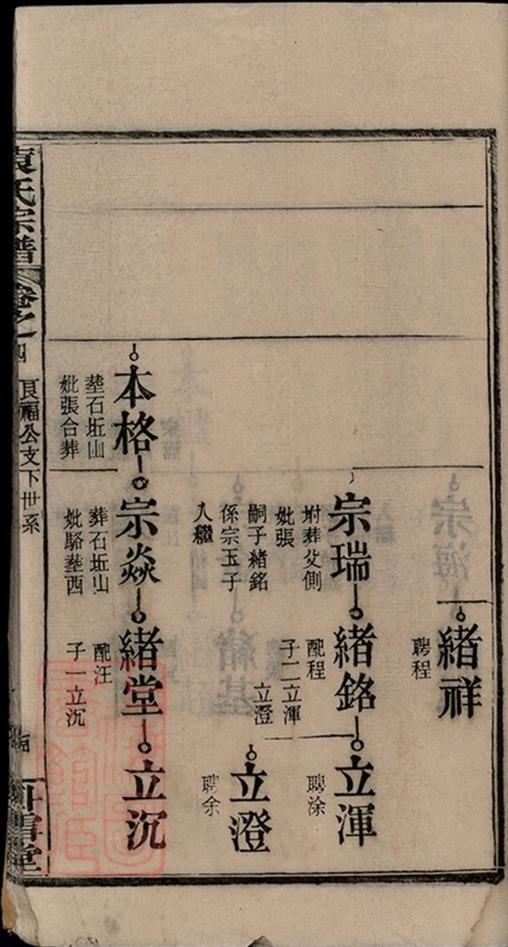 緒祥
聘程
宗瑞
坿葬父側
妣張
嗣子緒銘
係宗玉子
入繼
緒銘
配程
子二立渾
立澄
立渾
聘涂
立澄
聘余
本格
塟石坵山
妣張合葬
宗焱
葬石坵山
妣駱塟西
緒堂
配汪
子一立沉
立沉
袁氏宗譜
卷之
四
良福公支下世系